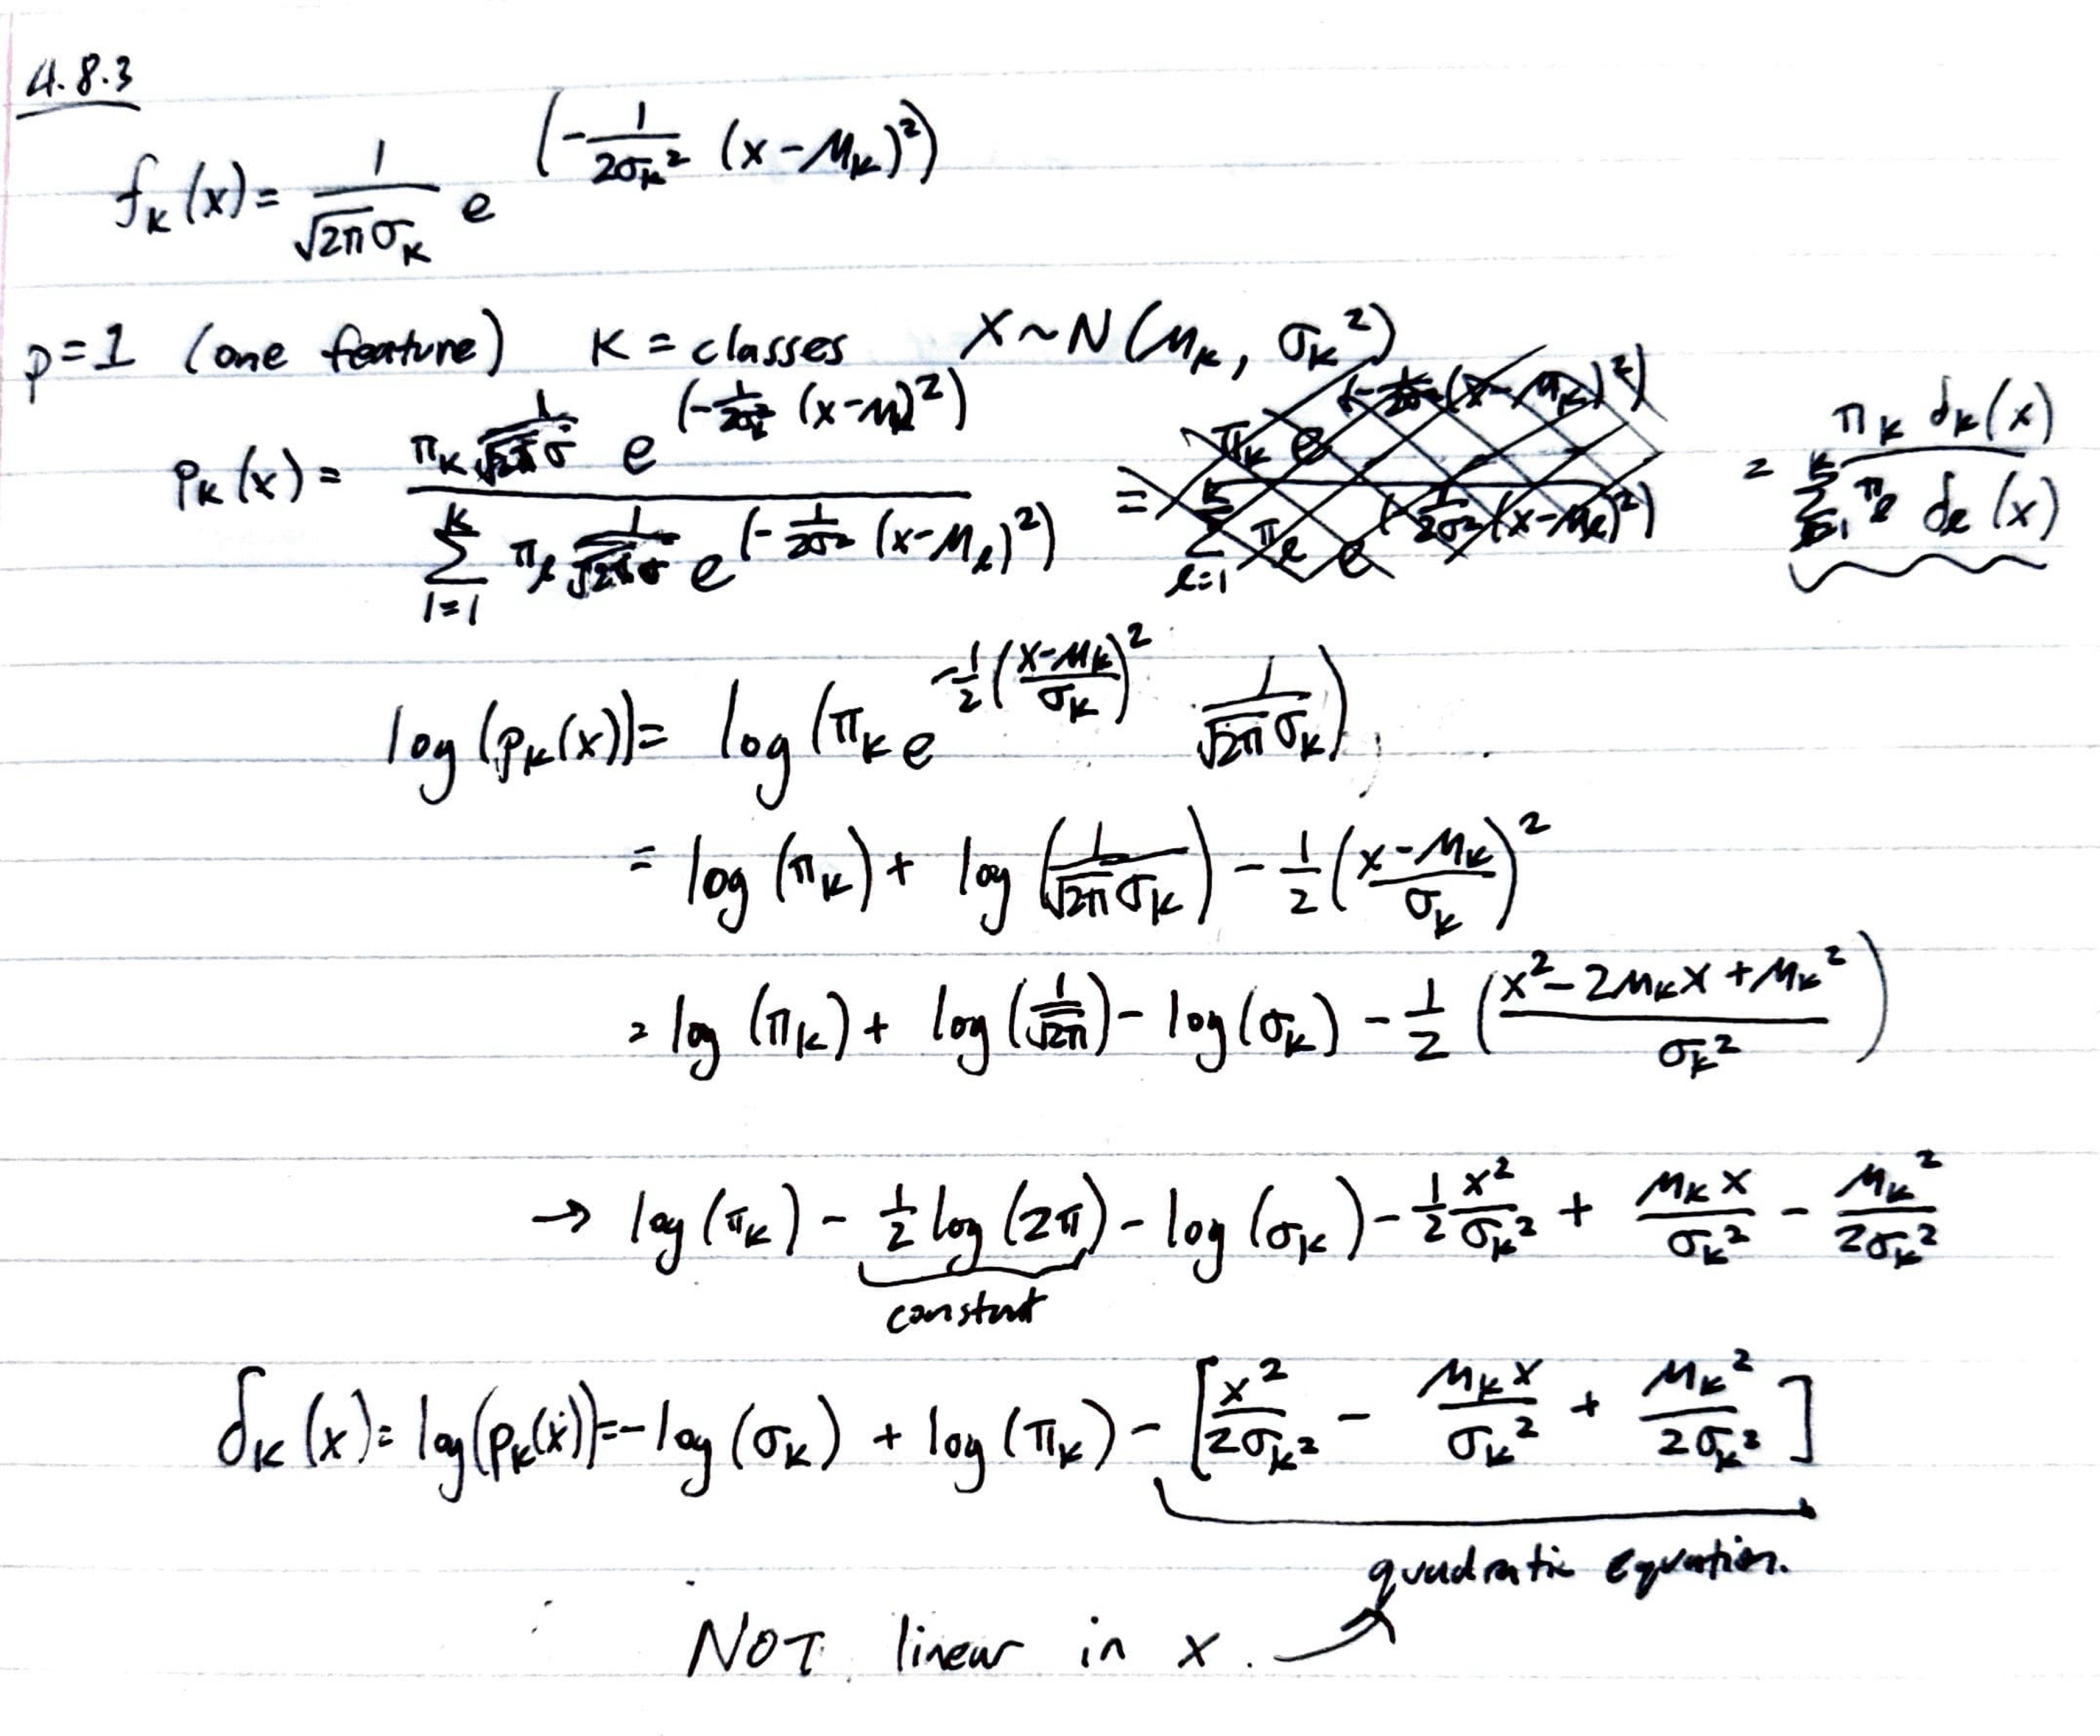 4.8.3
f_k(x) = 1/(√2π σ_k) e^(-1/(2σ_k²) (x-μ_k)²)
p=1 (one feature) K = classes X~N(μ_k, σ_k²)
p_k(x) = (π_k 1/(√2π σ) e^(-1/(2σ_k²) (x-μ_k)²)) / (∑_{l=1}^K π_l 1/(√2π σ) e^(-1/(2σ²) (x-μ_l)²)) = (π_k e^(-1/(2σ²) (x-μ_k)²)) / (∑_{l=1}^K π_l e^(-1/(2σ²) (x-μ_l)²)) = (π_k d_k(x)) / (∑_{l=1}^K π_l d_l(x))
log(p_k(x)) = log(π_k e^(-1/2 ((x-μ_k)/σ_k)²) 1/(√2π σ_k))
= log(π_k) + log(1/(√2π σ_k)) - 1/2 ((x-μ_k)/σ_k)²
= log(π_k) + log(1/√2π) - log(σ_k) - 1/2 ((x²-2μ_k x+μ_k²)/σ_k²)
→ log(π_k) - 1/2 log(2π) - log(σ_k) - 1/2 x²/σ_k² + μ_k x/σ_k² - μ_k²/2σ_k²
constant
δ_k(x) = log(p_k(x)) = -log(σ_k) + log(π_k) - [x²/2σ_k² - μ_k x/σ_k² + μ_k²/2σ_k²]
quadratic equation.
NOT linear in x.